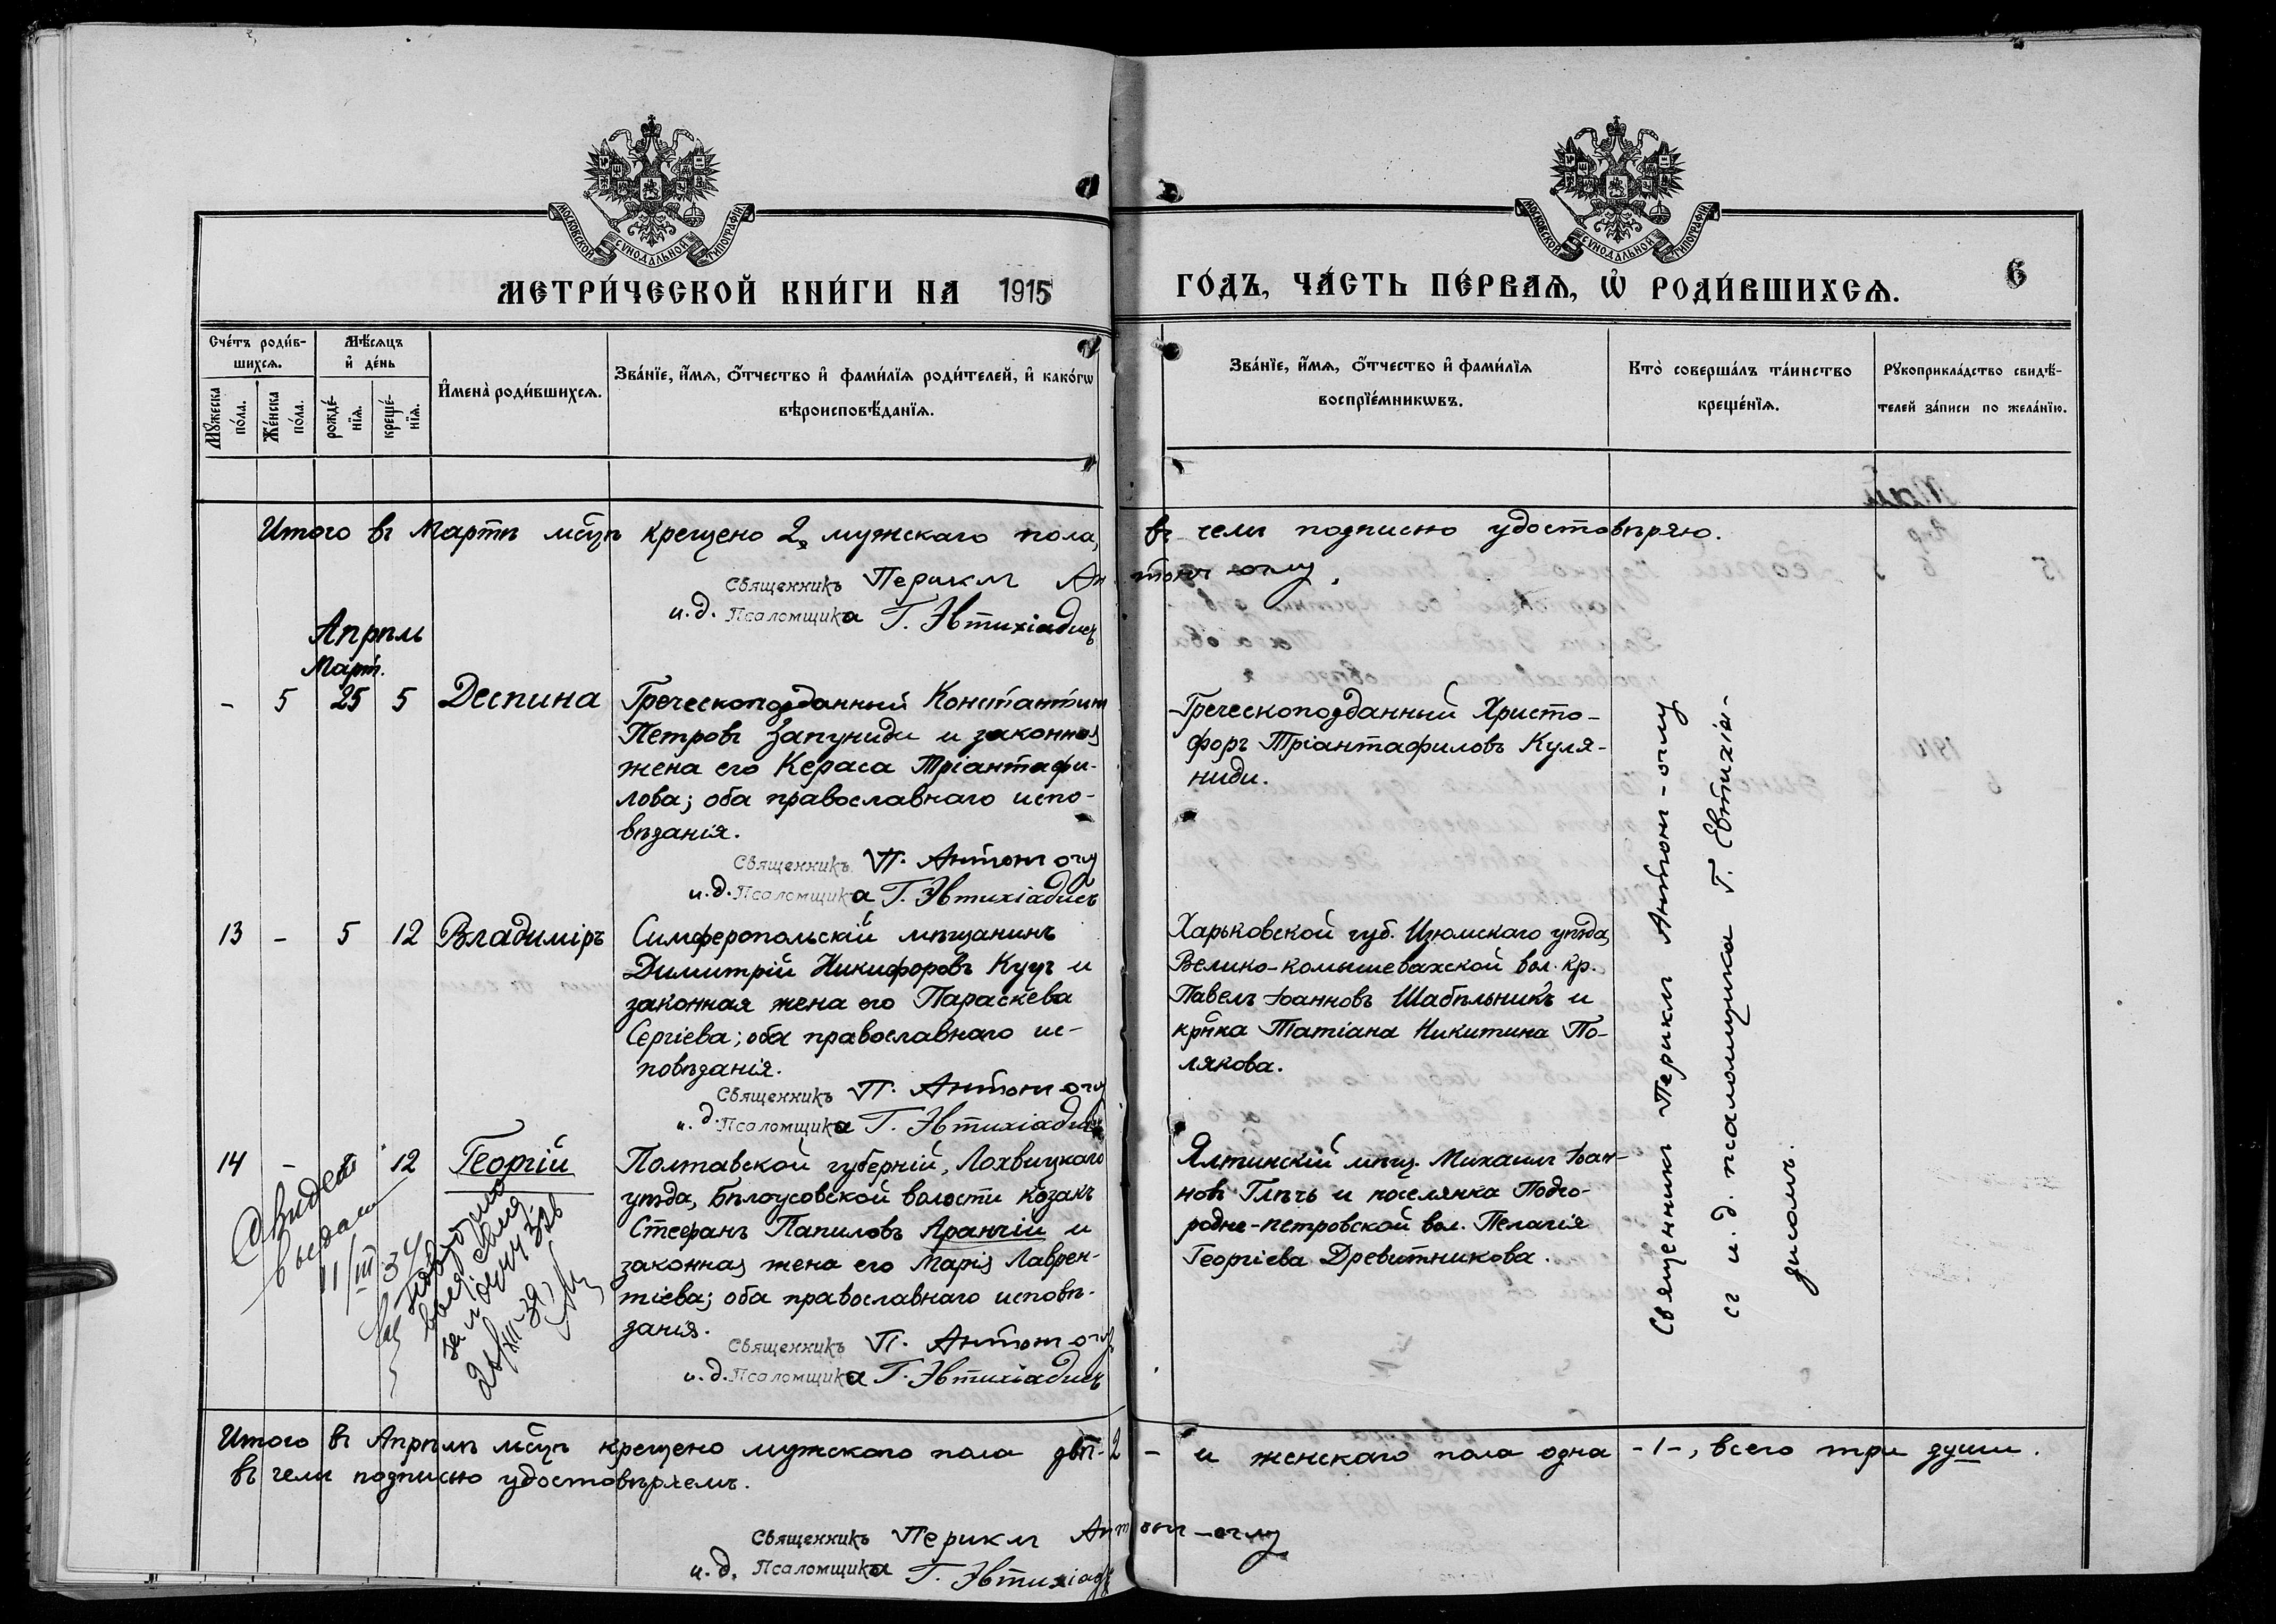 МОСКОВСКОЙ СѴНОДАЛЬНОЙ ТИПОГРАФІИ
МОСКОВСКОЙ СѴНОДАЛЬНОЙ ТИПОГРАФІИ
МЕТРИ́ЧЕСКОЙ КНИ́ГИ НА 1915 ГО́ДЪ, ЧА́СТЬ ПЕ́РВАѦ, Ѡ҆ РОДИ́ВШИХСѦ.
6
Сче́тъ роди́в-
шихсѧ.
Мꙋ́жеска
по́ла.
Же́нска
по́ла.
Мѣ́сѧцъ
и҆ де́нь
рожде́-
нїѧ.
креще́-
нїѧ.
И҆мена̀ роди́вшихсѧ.
Зва́нїе, и҆́мѧ, ѻ҆́тчество и҆ фами́лїѧ роди́телей, и҆ како́гѡ
вѣроисповѣ́данїѧ.
Зва́нїе, и҆́мѧ, ѻ҆́тчество и҆ фами́лїѧ
воспрїе́мникѡвъ.
Кто̀ соверша́лъ та́инство
креще́нїѧ.
Рꙋкоприкла́дство свидѣ́-
телей за́писи по жела́нїю.
Итого въ Мартѣ мѣсцѣ крещено 2 мужскаго пола, въ чемъ подписью удостовѣряю.
Священникъ Периклъ Антонъ оглу.
и.д. Псаломщика Г. Эвтихіадисъ
Апрѣль
Март.
- 5 25 5 Деспина
Греческоподданный Константинъ
Петровъ Запуниди и законная
жена его Кераса Тріантафи-
лова; оба православнаго испо-
вѣданія.
Священникъ П. Антонъ оглу
и.д. Псаломщика Г. Эвтихіадисъ
Греческоподданный Христо-
форъ Тріантафиловъ Куля-
ниди.
13 - 5 12 Владиміръ
Симферопольскій мѣщанинъ
Димитрій Никифоровъ Куцъ и
законная жена его Параскева
Сергіева; оба православнаго ис-
повѣданія.
Священникъ П. Антонъ оглу
и.д. Псаломщика Г. Эвтихіадисъ
Харьковской губ. Изюмскаго уѣзда,
Велико-Комышевахской вол. кр.
Павелъ Іоанновъ Шабѣльникъ и
крѣнка Татіана Никитина По-
лякова.
14 - 12 Георгій
Полтавской губерніи, Лохвицкаго
уѣзда, Бѣлоусовской волости козакъ
Стефанъ Папиловъ Аранчій и
законная жена его Марія Лаврен-
тіева; оба православнаго исповѣ-
данія.
Священникъ П. Антонъ оглу
и.д. Псаломщика Г. Эвтихіадисъ
Ялтинскій мѣщ. Михаилъ Іоан-
новъ Глѣчъ и поселянка Подго-
родне-петровской вол. Пелагія
Георгіева Древитникова.
Свидет
выдан
11/III 34
Повторно
выд. свид
за №
Священникъ Периклъ Антонъ-оглу
съ и.д. псаломщика Г. Евтихіа-
дисомъ.
Итого въ Апрѣлѣ мѣсцѣ крещено мужскаго пола двѣ-2 - и женскаго пола одна -1-, всего три души.
въ чемъ подписью удостовѣряемъ.
Священникъ Периклъ Антонъ-оглу
и.д. Псаломщика Г. Эвтихіад